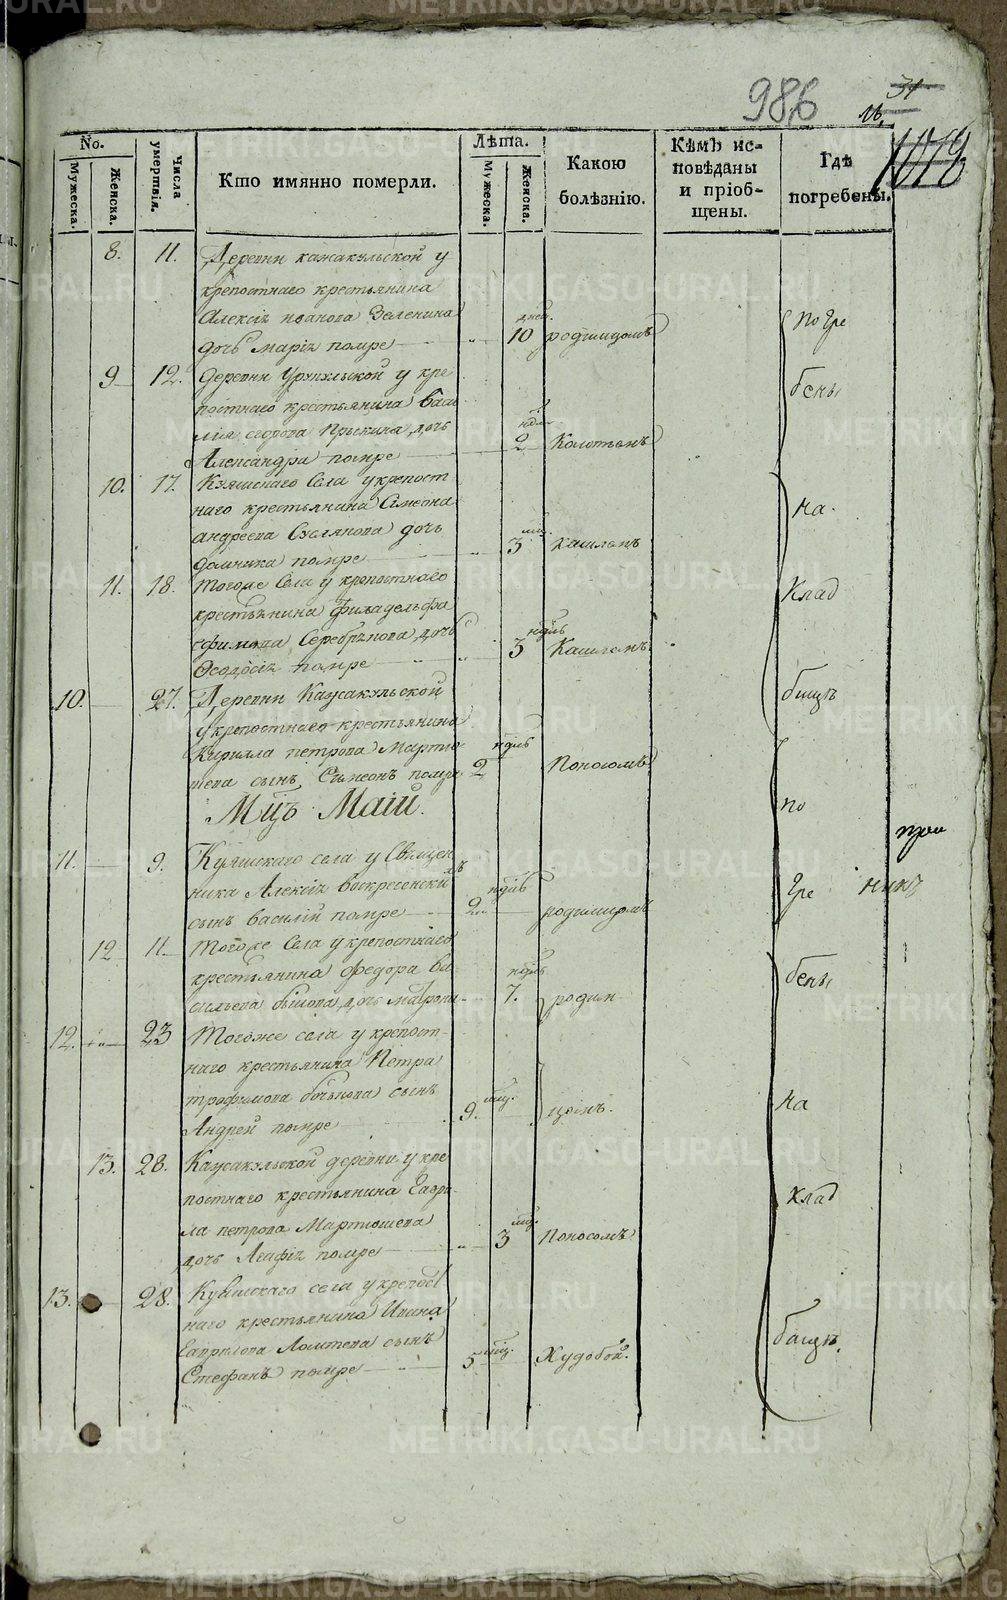 986
31
16.
1018
No.
Мужеска.
Женска.
Числа умертвія.
Кто имянно померли.
Лѣта.
Мужеска.
Женска.
Какою болѣзнію.
Кѣмъ исповѣданы и пріобщены.
Гдѣ погребены.
8. 11. Деревни кажакульской у
крепостнаго крестьянина
Алексія иванова Зеленина
дочь марія помре 10 дней. родимцомъ
9 12. деревни Урукульской у кре
постнаго крестьянина васи
лія егорова дочь
Александра помре 2 нѣдль
10. 17. Куяшскаго Села укрепост
наго крестьянина Симеона
андреева Суслянова дочь
домника помре 3 мѣс. кашлемъ
11. 18. Тогоже Села у крепостнаго
крестьянина филадельфа
ефимова Серебрякова дочь
Феодосія помре 3 нѣдль Кашлемъ
10. 27. Деревни Кажакульской
укрепостнаго крестьянина
Кирилла петрова Мартю
шева сынъ Симеонъ помре 2 нѣдль Поносомъ
Мцъ Маій.
11. 9. Куяшскаго села у Священ
ника Алексія Воскресенскаго
сынъ василій помре 2 нѣдль родимцомъ
12 11. Тогоже Села укрепостнаго
крестьянина федора Ва
сильева дочь матрона 7. нѣдль родим
12. 23 Тогоже села у крепост
наго крестьянина Петра
трофимова сынъ
Андрей помре 9. мѣц. цомъ.
13. 28. Кажакульской деревни у кре
постнаго крестьянина Гаври
ла петрова Мартюшева
дочь Агафія помре 3 мѣц. Поносомъ
13. 28. Куяшскаго села укрепост
наго крестьянина Ивана
Гаврилова сынъ
Стефанъ помре 5 мѣц. Худобой.
Погре
бены
на
Клад
бищѣ
по
гре
бены
на
клад
бищѣ.
METRIKI.GASO-URAL.RU